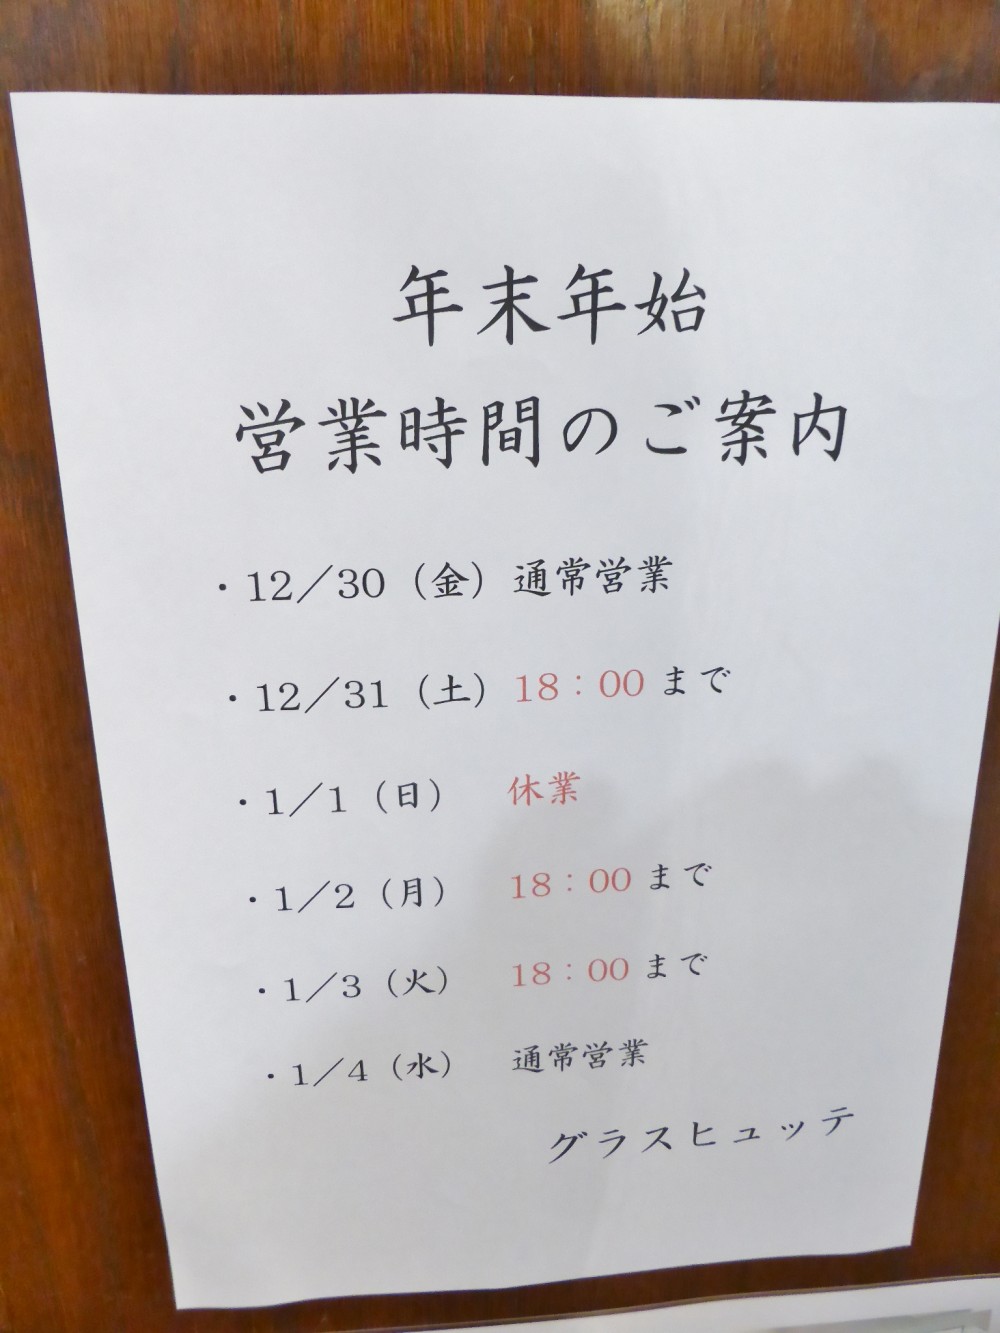 年末年始
営業時間のご案内
・12／30（金）通常営業
・12／31（土）18：00まで
・1／1（日）　休業
・1／2（月）　18：00まで
・1／3（火）　18：00まで
・1／4（水）　通常営業
グラスヒュッテ